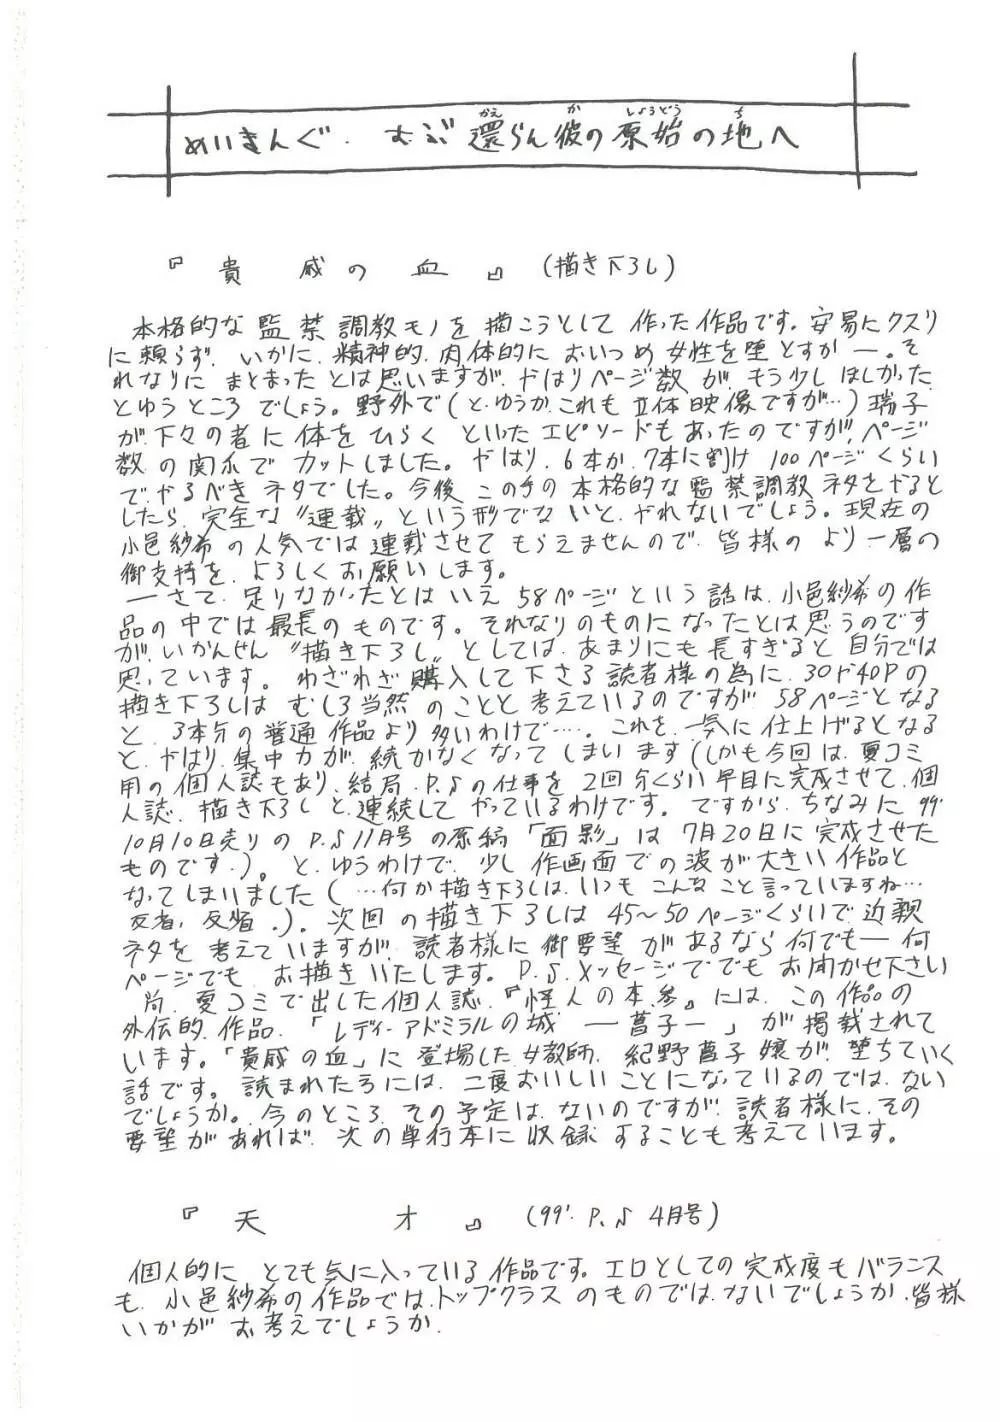 めいきんぐ・おぶ 還らん彼の原始の地へ
かえ か しょうどう ち
『貴戚の血』(描き下ろし)
本格的な監禁調教モノを描こうとして作った作品です。安易にクスリ
に頼らず、いかに、精神的、肉体的においつめ女性を堕とすか―。そ
れなりにまとまったとは思いますが、やはりページ数が、もう少しほしかった
とゆうところでしょう。野外で(と、ゆうか、これも立体映像ですが…)瑞子
が、下々の者に体をひらくといったエピソードもあったのですが、ページ
数の関係でカットしました。やはり、6本か、7本に割け100ページくらい
で、やるべきネタでした。今後この手の本格的な監禁調教ネタをやると
したら、完全な〝連載〟という形でないと、やれないでしょう。現在の
小邑紗希の人気では連載させてもらえませんので、皆様のより一層の
御支持を、よろしくお願いします。
―さて、足りなかったとはいえ58ページという話は、小邑紗希の作
品の中では最長のものです。それなりのものになったとは思うのです
が、いかんせん〝描き下ろし〟としては、あまりにも長すぎると自分では
思っています。わざわざ購入して下さる読者様の為に、30や40Pの
描き下ろしはむしろ当然のことと考えているのですが58ページとなる
と、3本分の普通作品より多いわけで…。これを、一気に仕上げるとなる
と、やはり、集中力が、続かなくなってしまいます(しかも今回は、夏コミ
用の個人誌もあり、結局、P.♪の仕事を2回分くらい早目に完成させて、個
人誌、描き下ろしと、連続してやっているわけです。ですから、ちなみに99'
10月10日売りのP.♪11月号の原稿「面影」は7月20日に完成させた
ものです。)。と、ゆうわけで、少し作画面での波が大きい作品と
なってしまいました(…何か描き下ろしは、いつもこんなこと言っていますね…
反省、反省。)。次回の描き下ろしは45〜50ページくらいで、近親
ネタを考えていますが、読者様に御要望があるなら何でも―何
ページでも、お描きいたします。P.♪.メッセージででもお聞かせ下さい
尚、夏コミで出した個人誌、『怪人の本 参』には、この作品の
外伝的、作品、「レディーアドミラルの城 ―菖子―」が掲載されて
います。「貴戚の血」に登場した女教師、紀野菖子嬢が、堕ちていく
話です。読まれた方には、二度おいしいことになっているのでは、ない
でしょうか。今のところ、その予定は、ないのですが、読者様に、その
要望があれば、次の単行本に収録することも考えています。
『天才』(99'. P.♪ 4月号)
個人的にとても気に入っている作品です。エロとしての完成度もバランス
も、小邑紗希の作品では、トップクラスのものでは、ないでしょうか、皆様
いかがお考えでしょうか。